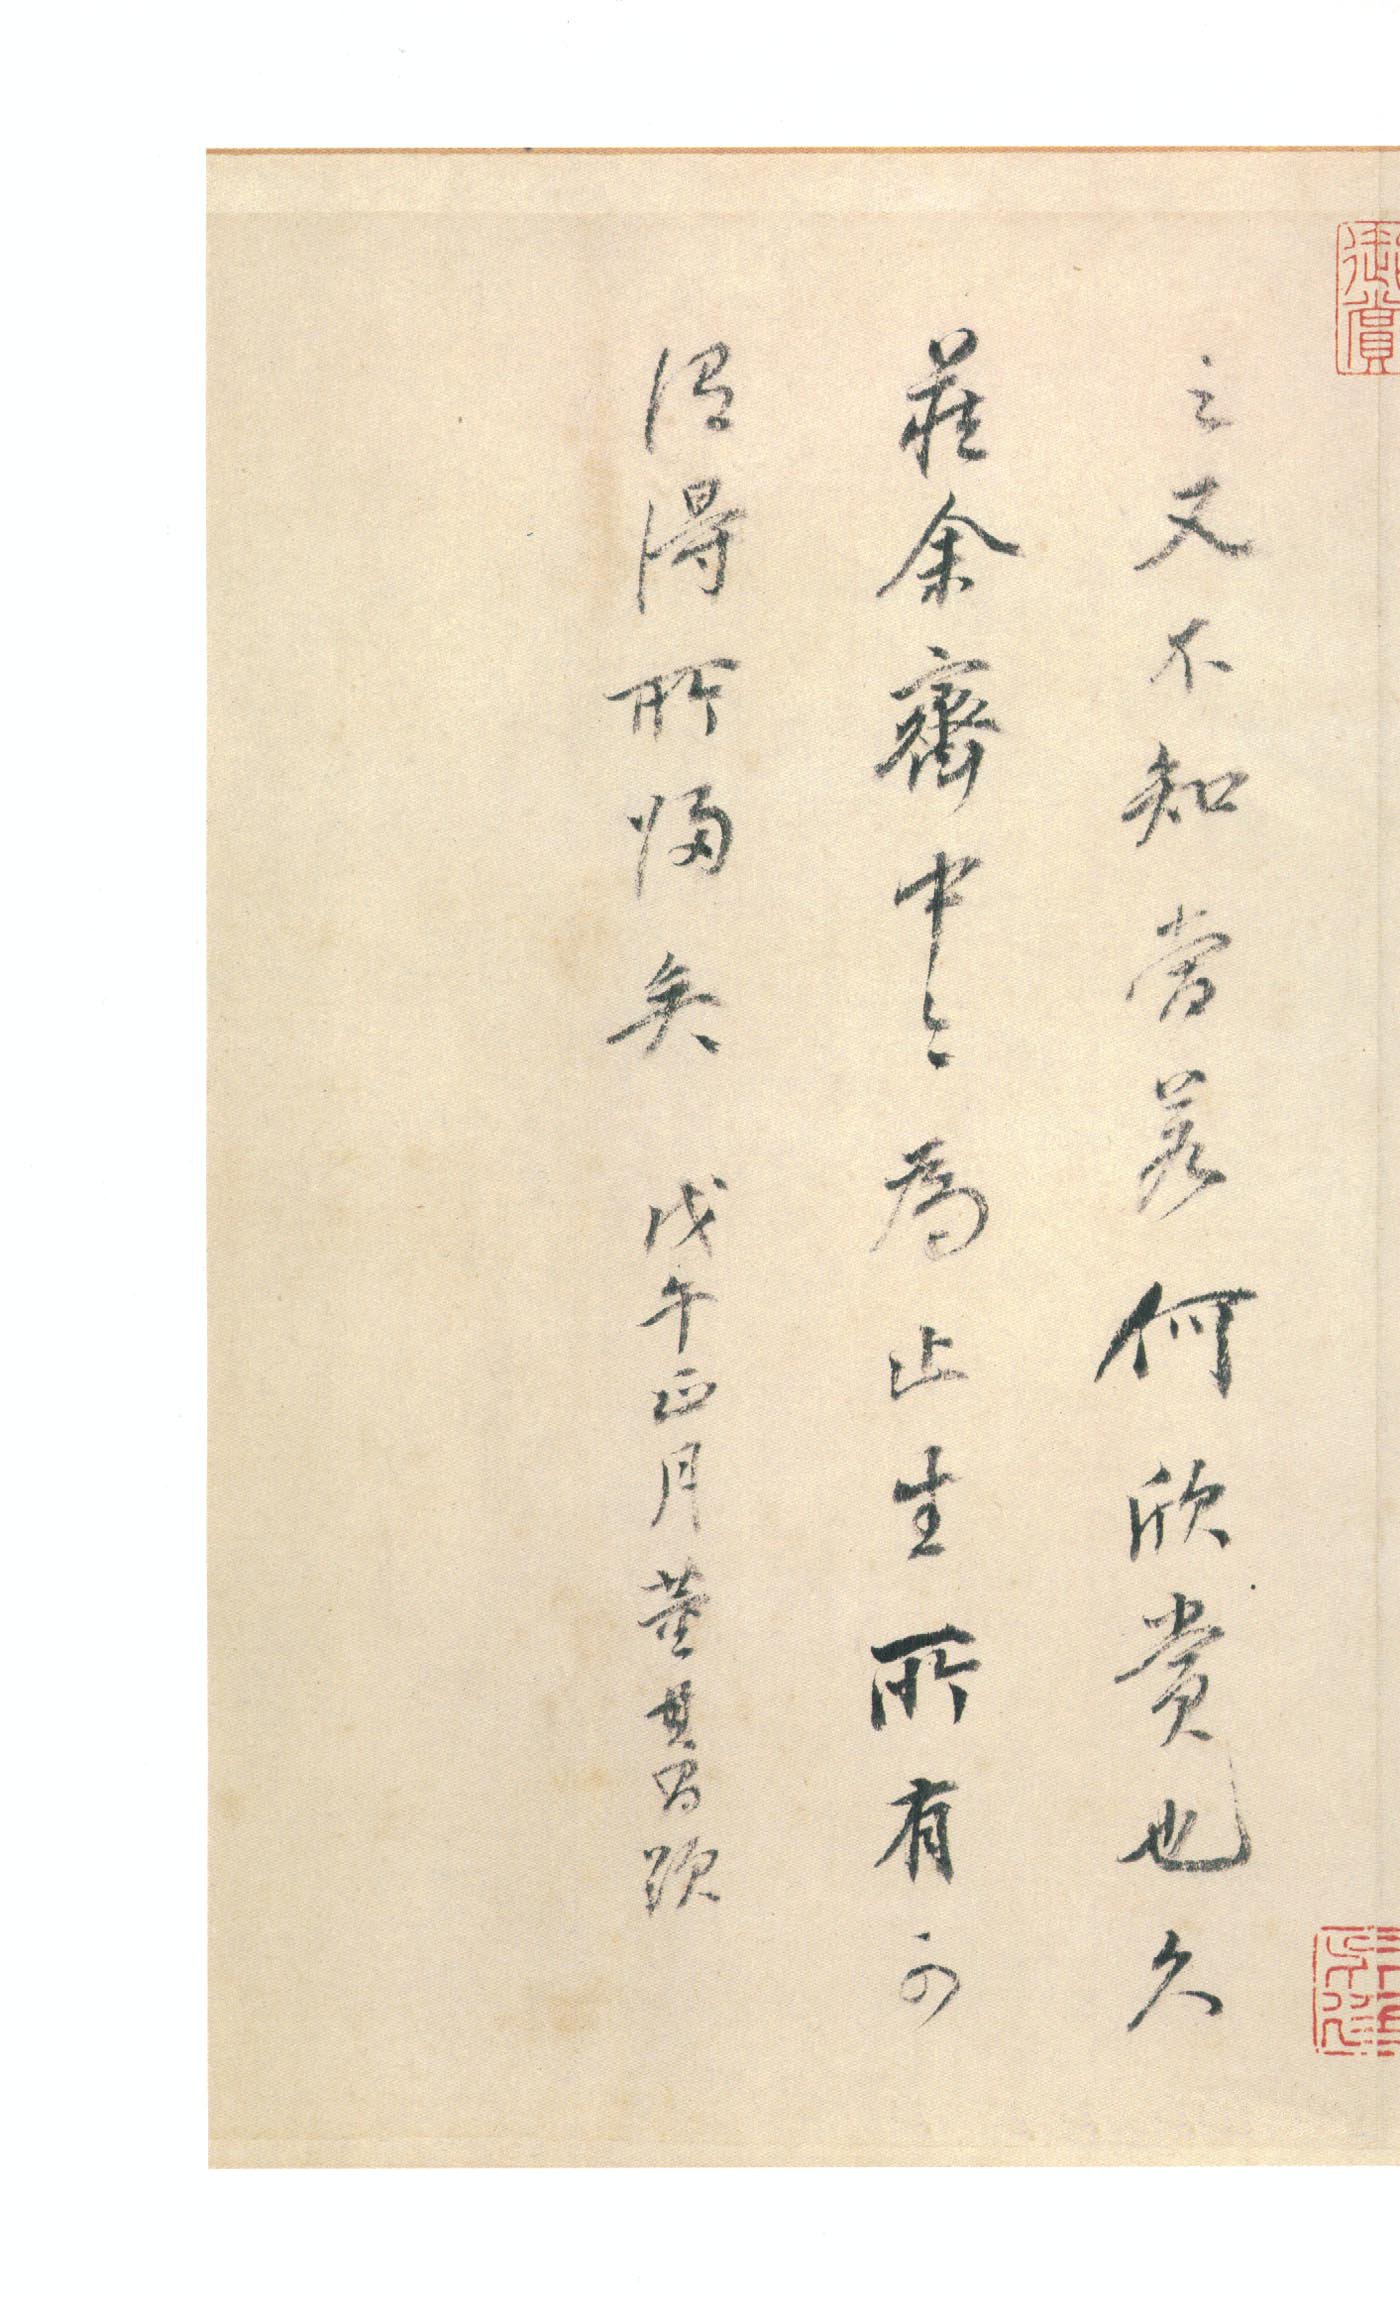 御賞
之又不知當若何欣賞也久
藏余齋中今為止生所有可
謂得所歸矣 戊午正月董其昌題